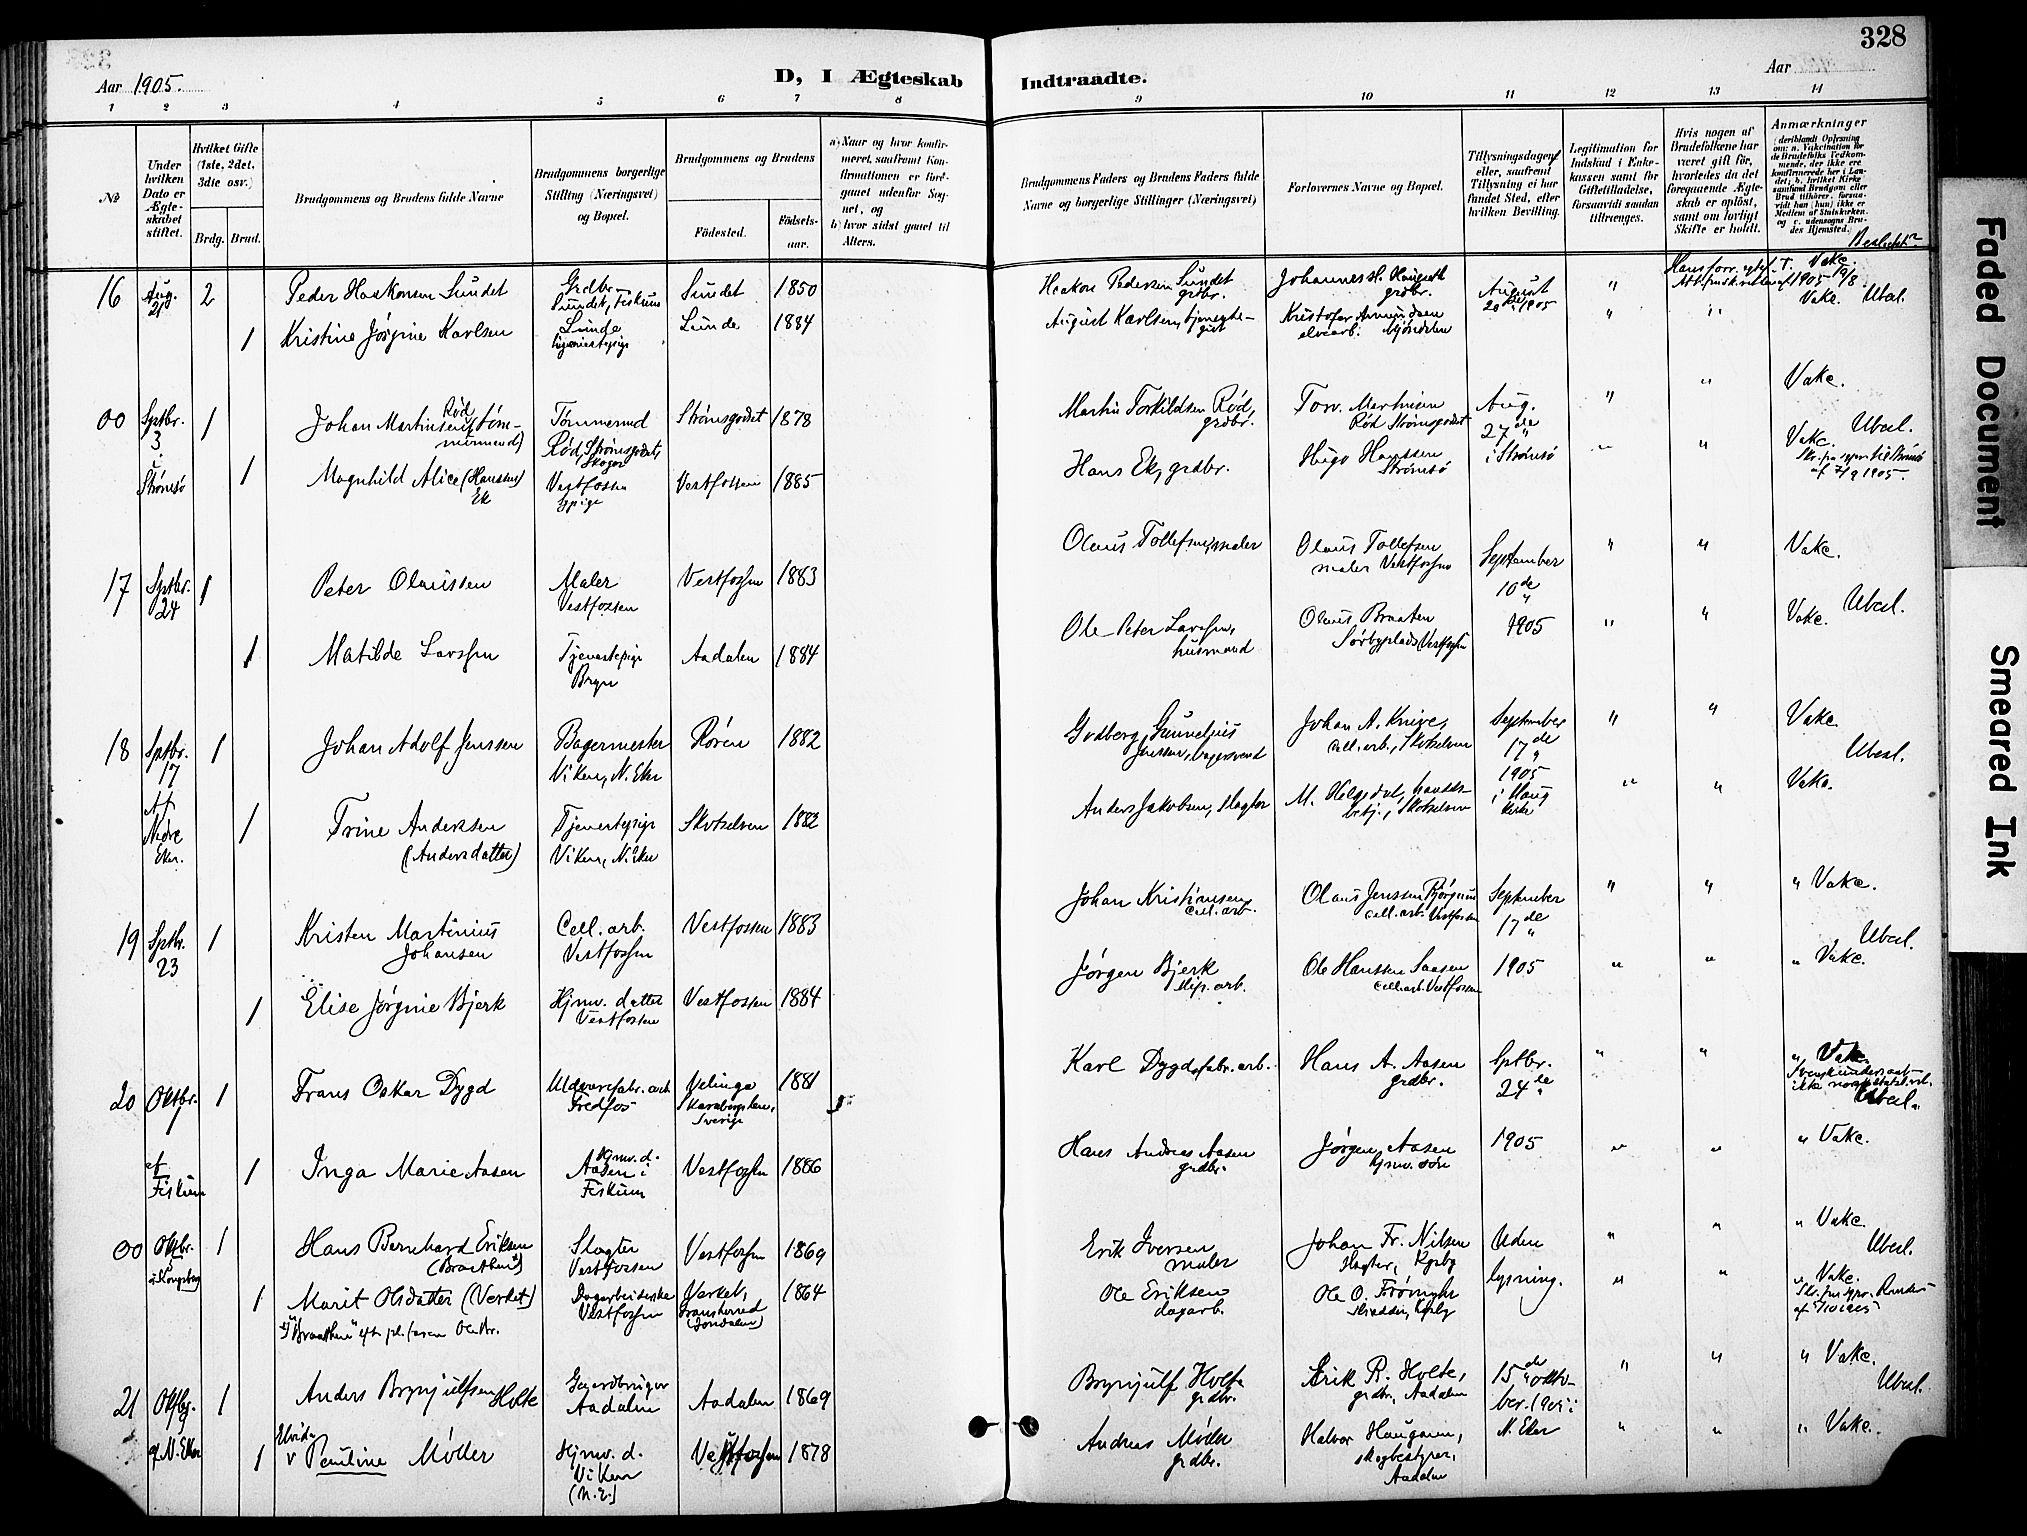 328
Aar 1905.
D, I Ægteskab Indtraadte.
Aar
1 2 3 4 5 6 7 8 9 10 11 12 13 14
No
Under hvilken Dato er Ægteskabet stiftet.
Hvilket Gifte (1ste, 2det, 3die osv.)
Brdg. Brud.
Brudgommens og Brudens fulde Navne
Brudgommens borgerlige Stilling (Næringsvei) og Bopæl.
Brudgommens og Brudens
Födested.
Födsels-aar.
a) Naar og hvor konfirmeret, saafremt Konfirmationen er foregaaet udenfor Sognet, og
b) hvor sidst gaaet til Alters.
Brudgommens Faders og Brudens Faders fulde Navne og borgerlige Stillinger (Næringsvei)
Forlovernes Navne og Bopæl.
Tillysningsdagene eller, saafremt Tillysning ei har fundet Sted, efter hvilken Bevilling.
Legitimation for Indskud i Enkekassen samt for Giftetilladelse, forsaavidt saadan tiltrænges.
Hvis nogen af Brudefolkene har været gift för, hvorledes da det foregaaende Ægteskab er oplöst, samt om lovligt Skifte er holdt.
Anmærkninger
16 Aug. 21 2 Peder Haakonsen Sundet Grdbr. Sundet, Fiskum Sundet 1850 Haakon Pedersen Sundet grdbr. Johannes H. grdbr. August 20de 1905 " Vake. Ubesl.
1 Kristine Jørgine Karlsen Lunde Lunde 1884 August Karlsen, Kristofer Amundsen elvearb. Mjøndalen " " Vake.
00 Sptbr. 3 i Strømsø 1 Johan Martinsen Rød (tømmermand) Tømmermd Rød, Strømsgodset, Skoger Strømsgodset 1878 Martin Torkildsen Rød, grdbr. Torv. Martinsen Rød Strømsgodset Aug. 27de " " Vake. Ubesl.
1 Magnhild Alice (Hanssen) Ek Vestfossen pige Vestfossen 1885 Hans Ek, grdbr. Hugo Hanssen Strømsø i Strømsø " " Vake.
17 Sptbr. 24 1 Peter Olaussen Maler Vestfossen Vestfossen 1883 Olaus Tollefsen, maler Olaus Tollefsen maler Vestfossen September 10de " " Vake. Ubesl.
1 Matilde Larssen Tjenestepige Bryn Aadalen 1884 Ole Peter Larssen, husmand Olaus Braaten Sørbyplads Vestfossen 1905 " " Vake.
18 Sptbr. 17 Af Nedre Eker. 1 Johan Adolf Jenssen Bagermester Viken, N. Eker Røren 1882 Godberg Gunnelius Jenssen, bagersvend Johan A. Knive, cell. arb., Skotselven September 17de " " Vake. Ubesl.
1 Trine Andersen (Andersdatter) Tjenestepige Viken, N. Eker Skotselven 1882 Anders Jakobsen, slagter M. Helgedal, Skotselven 1905 i Haug kirke " " Vake.
19 Sptbr. 23 1 Kristen Martinius Johansen Cell. arb. Vestfossen Vestfossen 1883 Johan Kristiansen, cell. arb. Olaus Jenssen cell. arb. Vestfossen September 17de " " " Vake. Ubesl.
1 Elise Jørgine Bjerk Hjmv. datter Vestfossen Vestfossen 1884 Jørgen Bjerk slip. arb. Ole Hanssen Saasen cell. arb. Vestfossen 1905 " " " Vake.
20 Oktbr. 1 af Fiskum 1 Frans Oskar Dygd Uldvarefabr. arb. Fredfos Velinga Skaraborgs län, Sverige 1881 Karl Dygd, fabr. arb. Hans A. Aasen grdbr. Sptbr. 24de " " " Vake. Ubesl.
1 Inga Marie Aasen Hjmv. d. Aasen i Fiskum Vestfossen 1886 Hans Andreas Aasen grdbr. Jørgen Aasen hjmv. søn 1905 " " " Vake.
00 Oktbr. 5 i Kongsberg 1 Hans Bernhard Eriksen (Braathen) Slagter Vestfossen Vestfossen 1869 Erik Iversen maler Johan Fr. Nilsen slagter, Kgsbg Uden " " " Vake. Ubesl.
1 Marit Olsdatter (Verket) Dagarbeiderske Vestfossen Verket, (Jondalen) 1864 Ole Eriksen dagarb. Ole O. skrædder, Kgsbg lysning. " " " Vake.
21 Oktbr. 9 af N. Eker 1 Anders Brynjulfsen Holte Gaardbruger Aadalen Aadalen 1869 Brynjulf Holte grdbr. Erik R. Holte, grdbr., Aadalen 15de oktober 1905 i " " " Vake. Ubesl.
1 Pauline Møller Hjmv. d. Viken (N. E.) Vestfossen 1878 Andreas Møller grdbr. Halvor Haugann, skogbestyrer, Aadalen N. Eker " " " Vake.
Faded Document
Smeared Ink